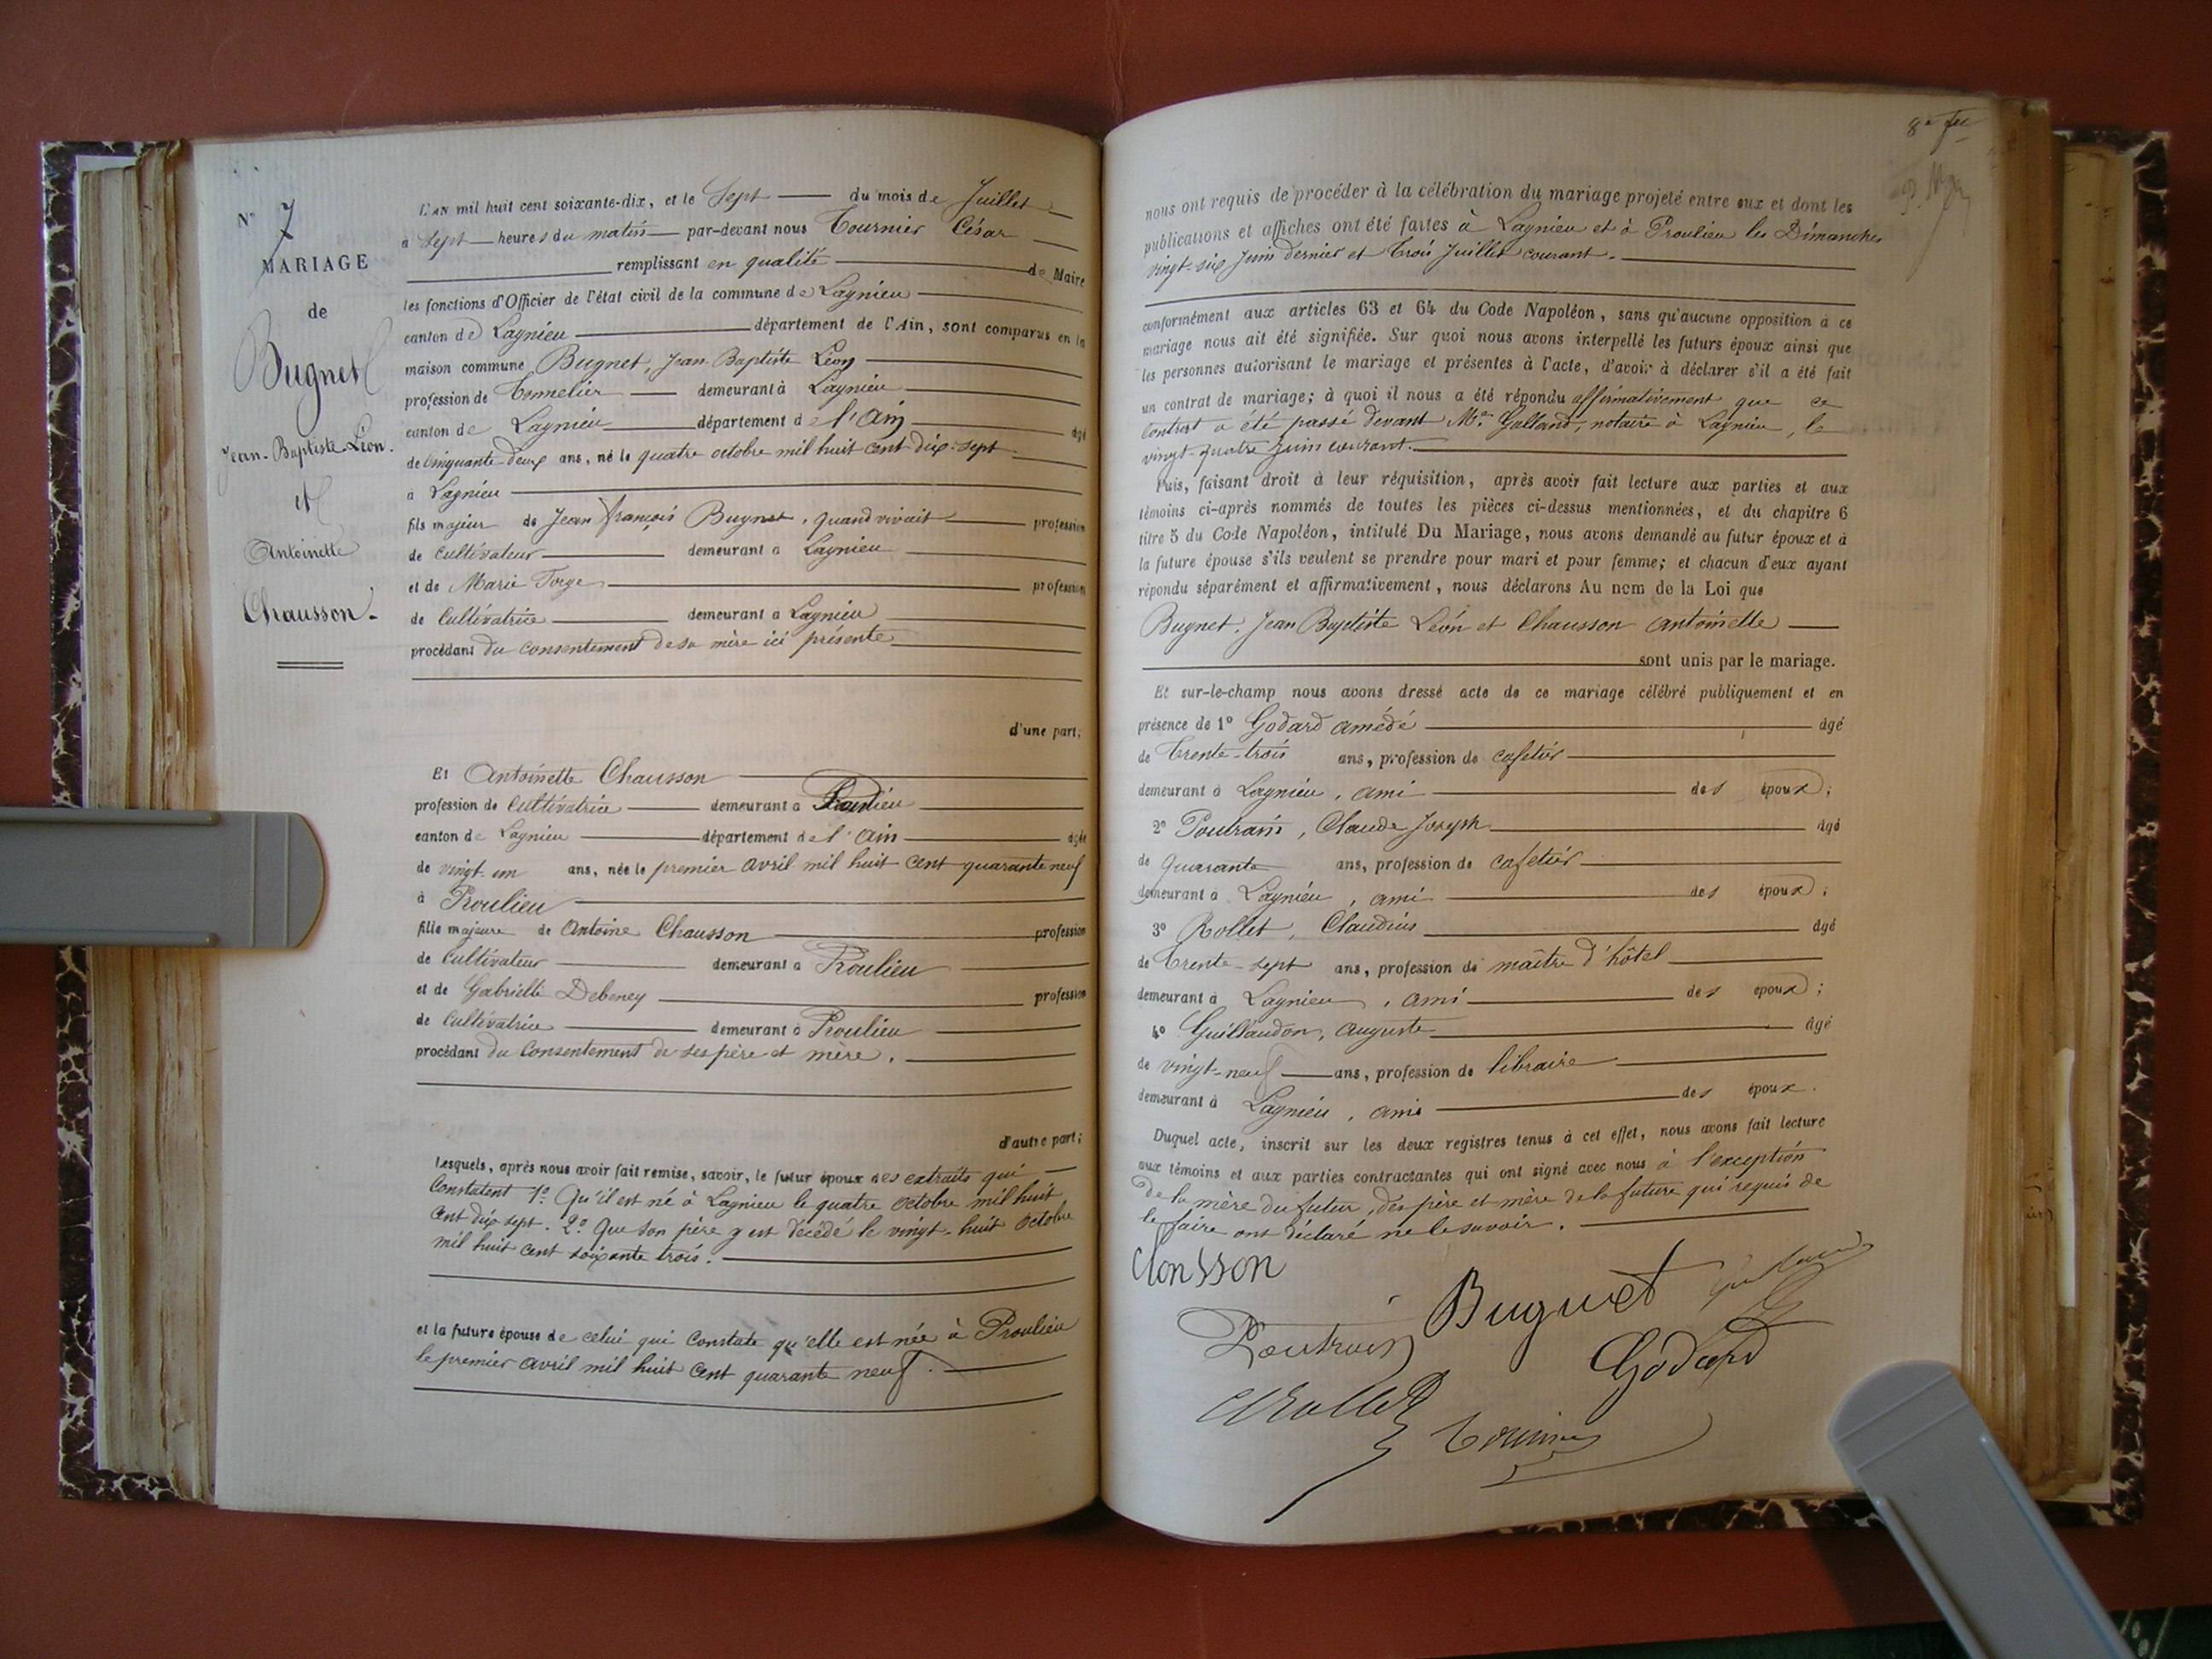 N° 7
MARIAGE
de
Bugnet
Jean-Baptiste-Léon.
et
Antoinette
Chausson.
L'AN mil huit cent soixante-dix, et le Sept du mois de Juillet
à Sept heures du matin par-devant nous Tournier César
remplissant en qualité de Maire
les fonctions d'Officier de l'état civil de la commune de Lagnieu
canton de Lagnieu département de l'Ain, sont comparus en la
maison commune Bugnet, Jean-Baptiste Léon
profession de Tonnelier demeurant à Lagnieu
canton de Lagnieu département de l'Ain âgé
de Cinquante deux ans, né le quatre octobre mil huit cent dix-sept
à Lagnieu
fils majeur de Jean François Bugnet, quand vivait profession
de Cultivateur demeurant à Lagnieu
et de Marie Torge profession
de Cultivatrice demeurant à Lagnieu
procédant du consentement de sa mère ici présente
d'une part;
Et Antoinette Chausson
profession de Cultivatrice demeurant à Proulieu
canton de Lagnieu département de l'Ain âgée
de vingt-un ans, née le premier avril mil huit cent quarante neuf
à Proulieu
fille majeure de Antoine Chausson profession
de Cultivateur demeurant à Proulieu
et de Gabrielle Debeney profession
de Cultivatrice demeurant à Proulieu
procédant du Consentement de ses père et mère.
d'autre part;
Lesquels, après nous avoir fait remise, savoir, le futur époux des extraits qui
Constatent 1° Qu'il est né à Lagnieu le quatre octobre mil huit
cent dix-sept. 2° Que son père y est décédé le vingt-huit octobre
mil huit cent soixante trois.
et la future épouse de celui qui Constate qu'elle est née à Proulieu
le premier avril mil huit cent quarante neuf.
8e fe
nous ont requis de procéder à la célébration du mariage projeté entre eux et dont les
publications et affiches ont été faites à Lagnieu et à Proulieu les Dimanches
vingt-six Juin dernier et trois Juillet courant.
conformément aux articles 63 et 64 du Code Napoléon, sans qu'aucune opposition à ce
mariage nous ait été signifiée. Sur quoi nous avons interpellé les futurs époux ainsi que
les personnes autorisant le mariage et présentes à l'acte, d'avoir à déclarer s'il a été fait
un contrat de mariage; à quoi il nous a été répondu affirmativement que ce
Contrat a été passé devant Me Galland, notaire à Lagnieu, le
vingt-quatre juin courant.
Puis, faisant droit à leur réquisition, après avoir fait lecture aux parties et aux
témoins ci-après nommés de toutes les pièces ci-dessus mentionnées, et du chapitre 6
titre 5 du Code Napoléon, intitulé Du Mariage, nous avons demandé au futur époux et à
la future épouse s'ils veulent se prendre pour mari et pour femme; et chacun d'eux ayant
répondu séparément et affirmativement, nous déclarons Au nom de la Loi que
Bugnet, Jean Baptiste Léon et Chausson Antoinette
sont unis par le mariage.
Et sur-le-champ nous avons dressé acte de ce mariage célébré publiquement et en
présence de 1° Godard Amédé âgé
de Trente-trois ans, profession de cafetier
demeurant à Lagnieu, ami des époux;
2° Poutrain, Claude Joseph âgé
de quarante ans, profession de cafetier
demeurant à Lagnieu, ami des époux;
3° Rollet, Claudius âgé
de Trente-sept ans, profession de maître d'hôtel
demeurant à Lagnieu, ami des époux;
4° Guillaudon, Auguste âgé
de vingt-neuf ans, profession de libraire
demeurant à Lagnieu, ami des époux.
Duquel acte, inscrit sur les deux registres tenus à cet effet, nous avons fait lecture
aux témoins et aux parties contractantes qui ont signé avec nous à l'exception
de la mère du futur, des père et mère de la future qui requis de
le faire ont déclaré ne le savoir.
Chonsson
Bugnet
Poutrain
Godard
Rollet
Tournier